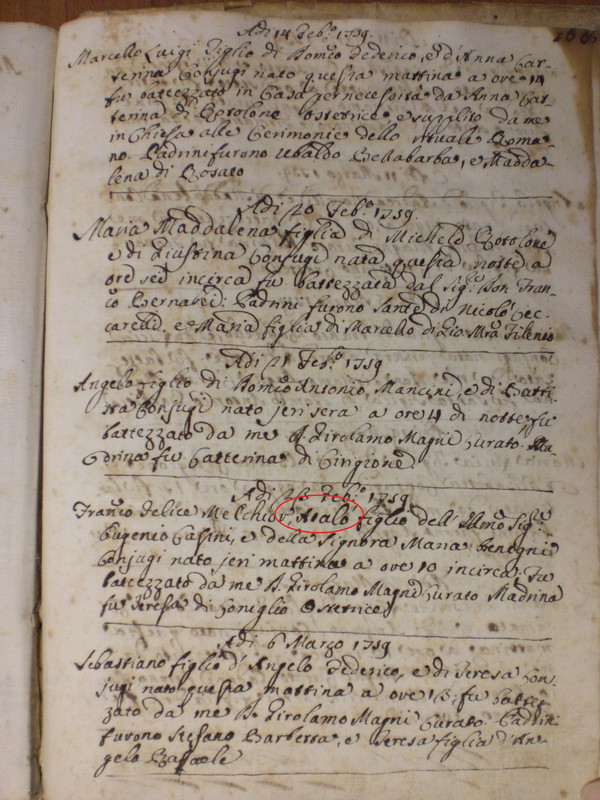 Adi 14 Feb.º 1759.
Marcello Luigi figlio di Dom.co Federico, e d'Anna Cat-
terina Conjugi nato questa mattina a ore 14
fu battezzato in Casa per necessità da Anna Cat-
terina di Bortolone Ostetrice, e supplito da me
in Chiesa alle Cerimonie dello rituale Roma-
no. Padrini furono Ubaldo Bellabarba, e Madda-
lena di Rosato
Adi 20 Feb.º 1759.
Maria Maddalena figlia di Michele
e di Giustina Conjugi nata questa notte a
ore sei incirca fu battezzata dal Sig.re Don Fran-
co Padrini furono Sante di Nicolò Cec-
carelli. e Maria figlia di Marcello di
Adi 21 Feb.º 1759
Angelo figlio di Dom.co Antonio Mancini, e di Batti-
sta Conjugi nato jeri sera a ore 4 di notte fu
battezzato da me D. Girolamo Magni Curato. Ma-
drina fu Catterina di Cingione
Adi Feb.º 1759
Fran.co Felice Melchior, figlio dell' Ill.mo Sig.re
Eugenio Casini, e della Signora Maria Benegni
Conjugi nato jeri mattina a ore 10 incirca. Fu
battezzato da me D. Girolamo Magni Curato Madrina
fu Teresa di Coniglio Ostetrice
Adi 6 Marzo 1759
Sebastiano figlio d'Angelo Federico, e di Teresa Con-
jugi nato questa mattina a ore 13: fu battez-
zato da me D. Girolamo Magni Curato. Padrini
furono Stefano Barbetta, e Teresa figlia d'An-
gelo Raffaele